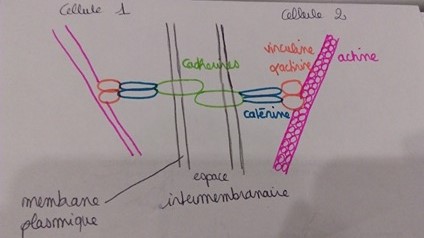 Cellule 1
Cellule 2
vinculine
α actinine
actine
cadhérines
caténine
espace
intermembranaire
membrane
plasmique